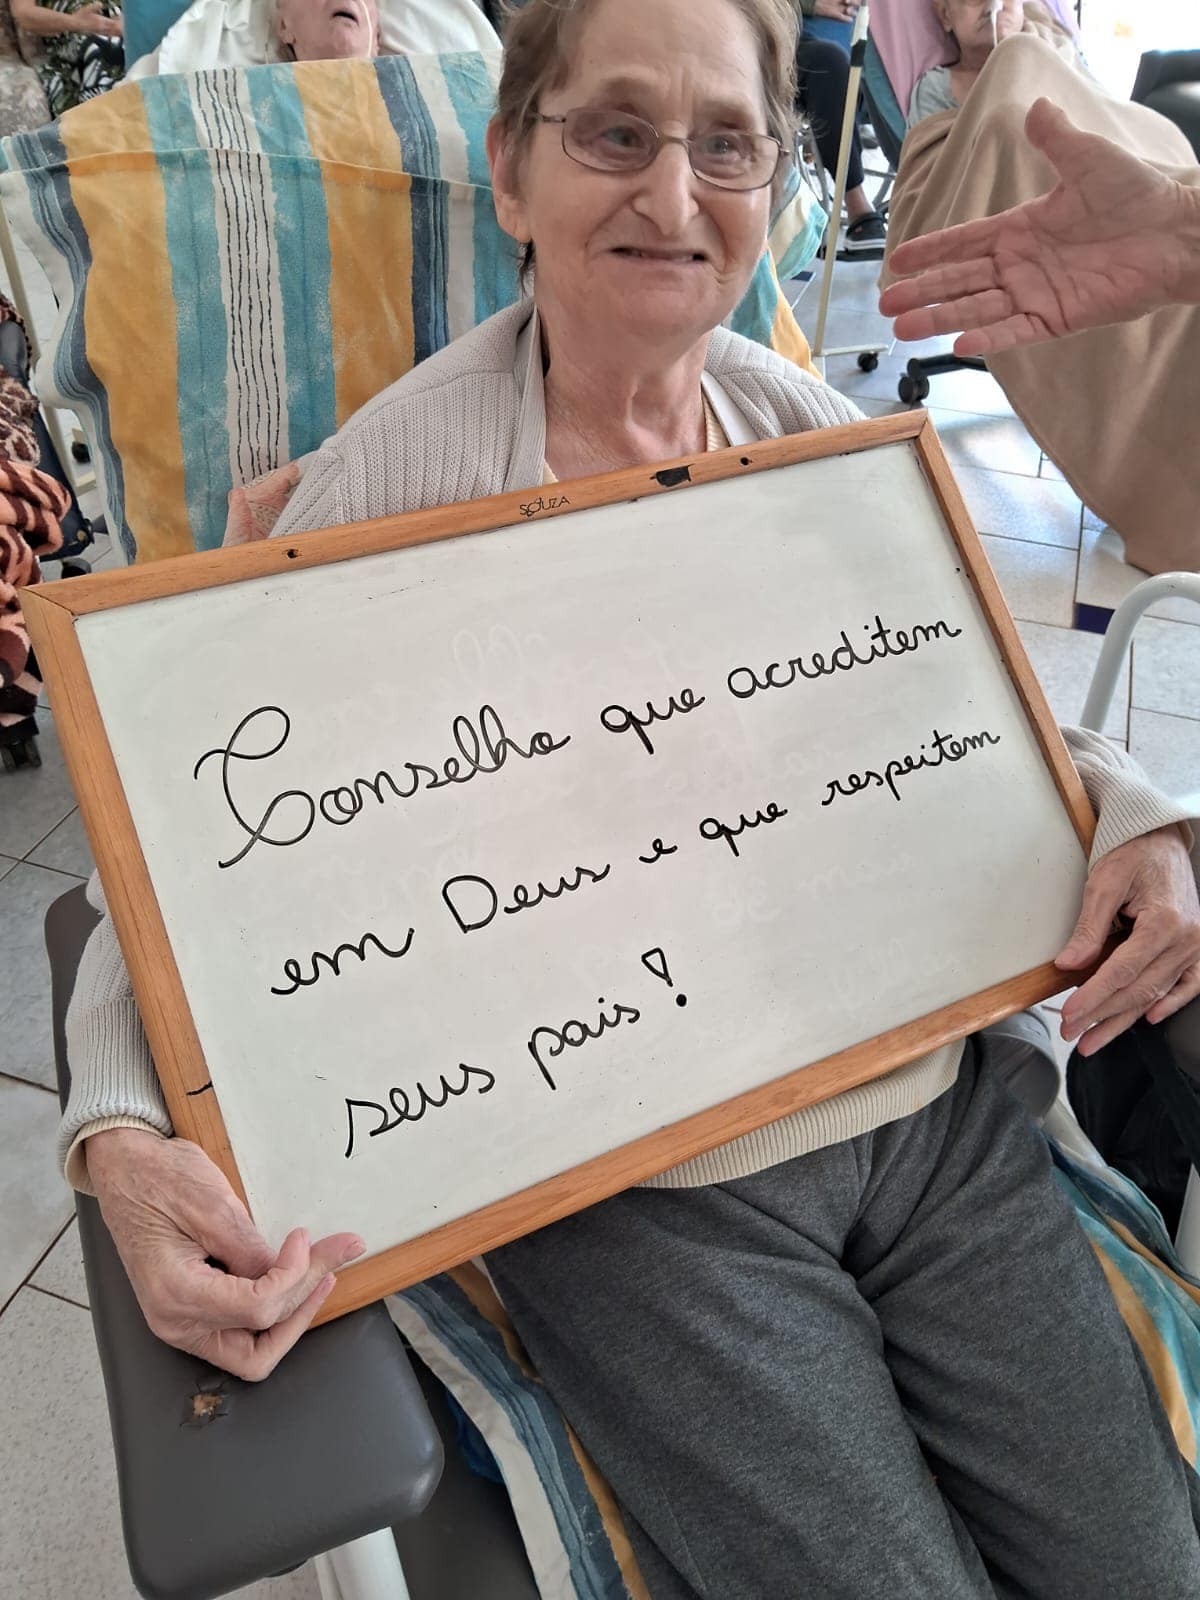 SOUZA
Conselho que acreditem
em Deus e que respeitem
seus pais!